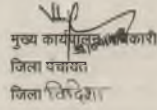 मुख्य कार्यपालन अधिकारी
जिला पंचायत
जिला विदिशा